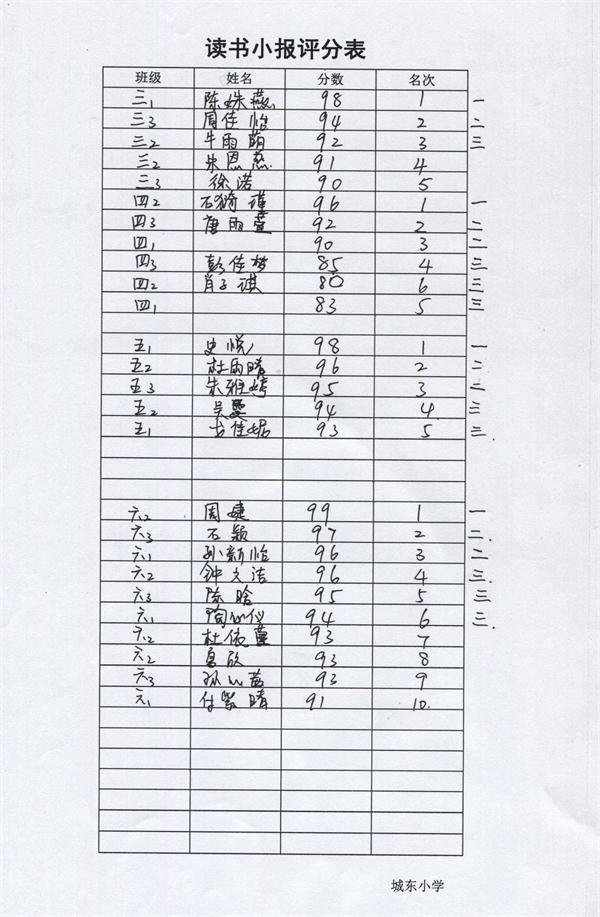 读书小报评分表
班级 姓名 分数 名次
三1 陈姝燕 98 1 一
三3 周佳怡 94 2 二
三2 牛雨萌 92 3 三
三2 朱恩慈 91 4
三3 徐诺 90 5
四2 石漪瑾 96 1 一
四3 唐雨萱 92 2 二
四1 90 3 二
四3 彭佳梦 85 4 三
四2 肖子琪 80 6 三
四1 83 5 三
五1 史悦 98 1 一
五2 杜雨晴 96 2 二
五3 朱雅婷 95 3 二
五2 吴曼 94 4 三
五1 佳妮 93 5 三.
六2 周婕 99 1 一
六3 石颖 97 2 二.
六1 孙新怡 96 3 二
六2 钟文洁 96 4 三.
六3 陈晗 95 5 三
六1 陶心仪 94 6 三.
六2 杜依萱 93 7
六2 欣 93 8
六3 孙 93 9
六1 付紫晴 91 10.
城东小学